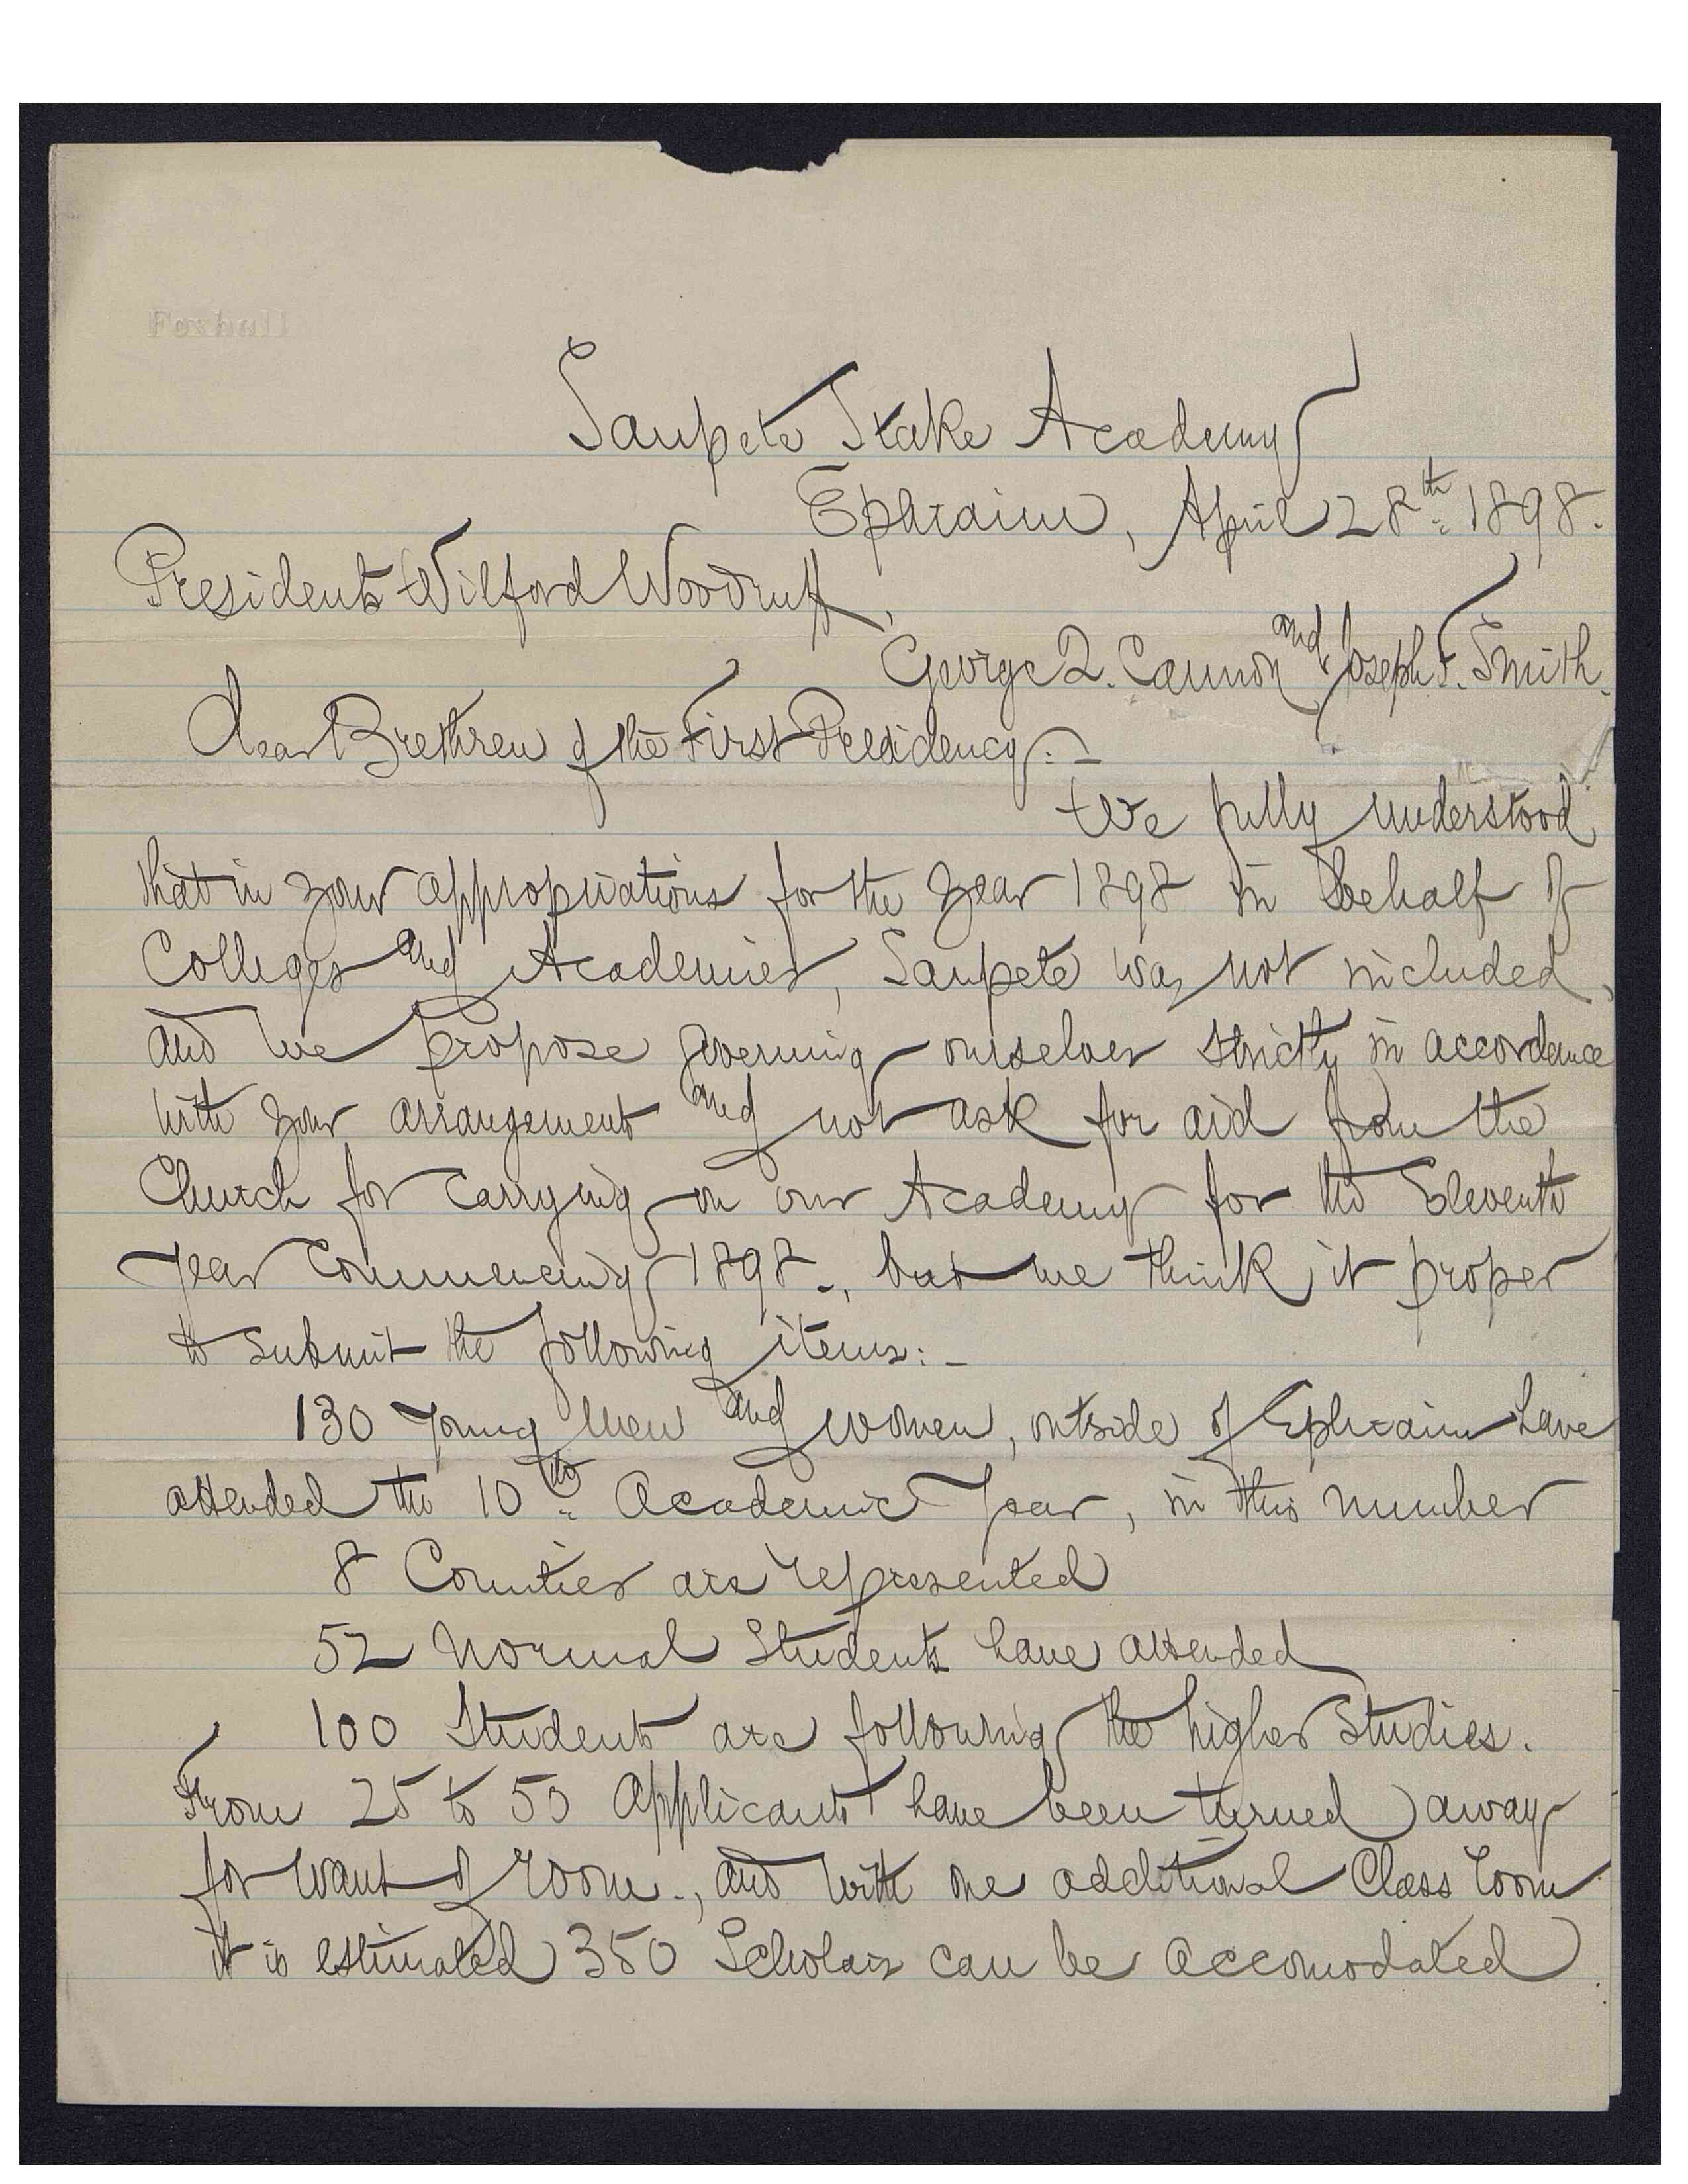 Foxhall
Sanpete Stake Academy
Ephraim, April 28th 1898.
Presidents Wilford Woodruff,
George Q. Cannon and Joseph F. Smith.
Dear Brethren of the First Presidency:-
We fully understood
that in your appropriations for the year 1898 in behalf of
Colleges and Academies, Sanpete was not included,
and we propose governing ourselves strictly in accordance
with your arrangements and not ask for aid from the
Church for carrying on our Academy for the Eleventh
year commencing 1898., but we think it proper
to submit the following items:-
130 young men and women, outside of Ephraim have
attended the 10th Academic year, in this number
8 Counties are represented
52 Normal Students have attended
100 Students are following the higher studies.
From 25 to 50 Applicants have been turned away
for want of room., and with one additional Class room
it is estimated 350 Scholars can be accomodated